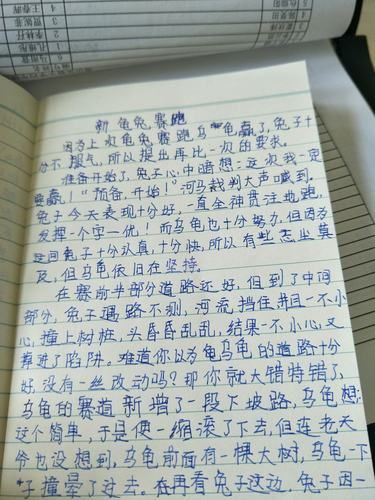 新 龟兔赛跑
因为上次龟兔赛跑乌龟赢了,兔子十
分不服气,所以提出再比一次的要求。
准备开始了,兔子心中暗想:这次我一定
要赢!"预备,开始!"河马裁判大声喊到。
兔子今天表现十分好,一直全神贯注地跑,
发挥一个字—优!而乌龟也十分努力,但因为
这回兔子十分认真,十分快,所以有些望尘莫
及,但乌龟依旧在坚持。
在赛前半部分道路还好,但到了中间
部分,兔子道路不利,河流挡住,并且一不小
心,撞上树桩,头昏昏乱乱,结果一不小心,又
掉进了陷阱。难道你以为龟乌龟的道路十分
好,没有一丝改动吗?那你就大错特错了,
乌龟的赛道新增了一段下坡路,乌龟想:
这个简单,于是便一缩滚了下去,但连老天
爷也没想到,乌龟前面有一棵大树,乌龟一下
子撞晕了过去。在再看兔子这边,兔子因一